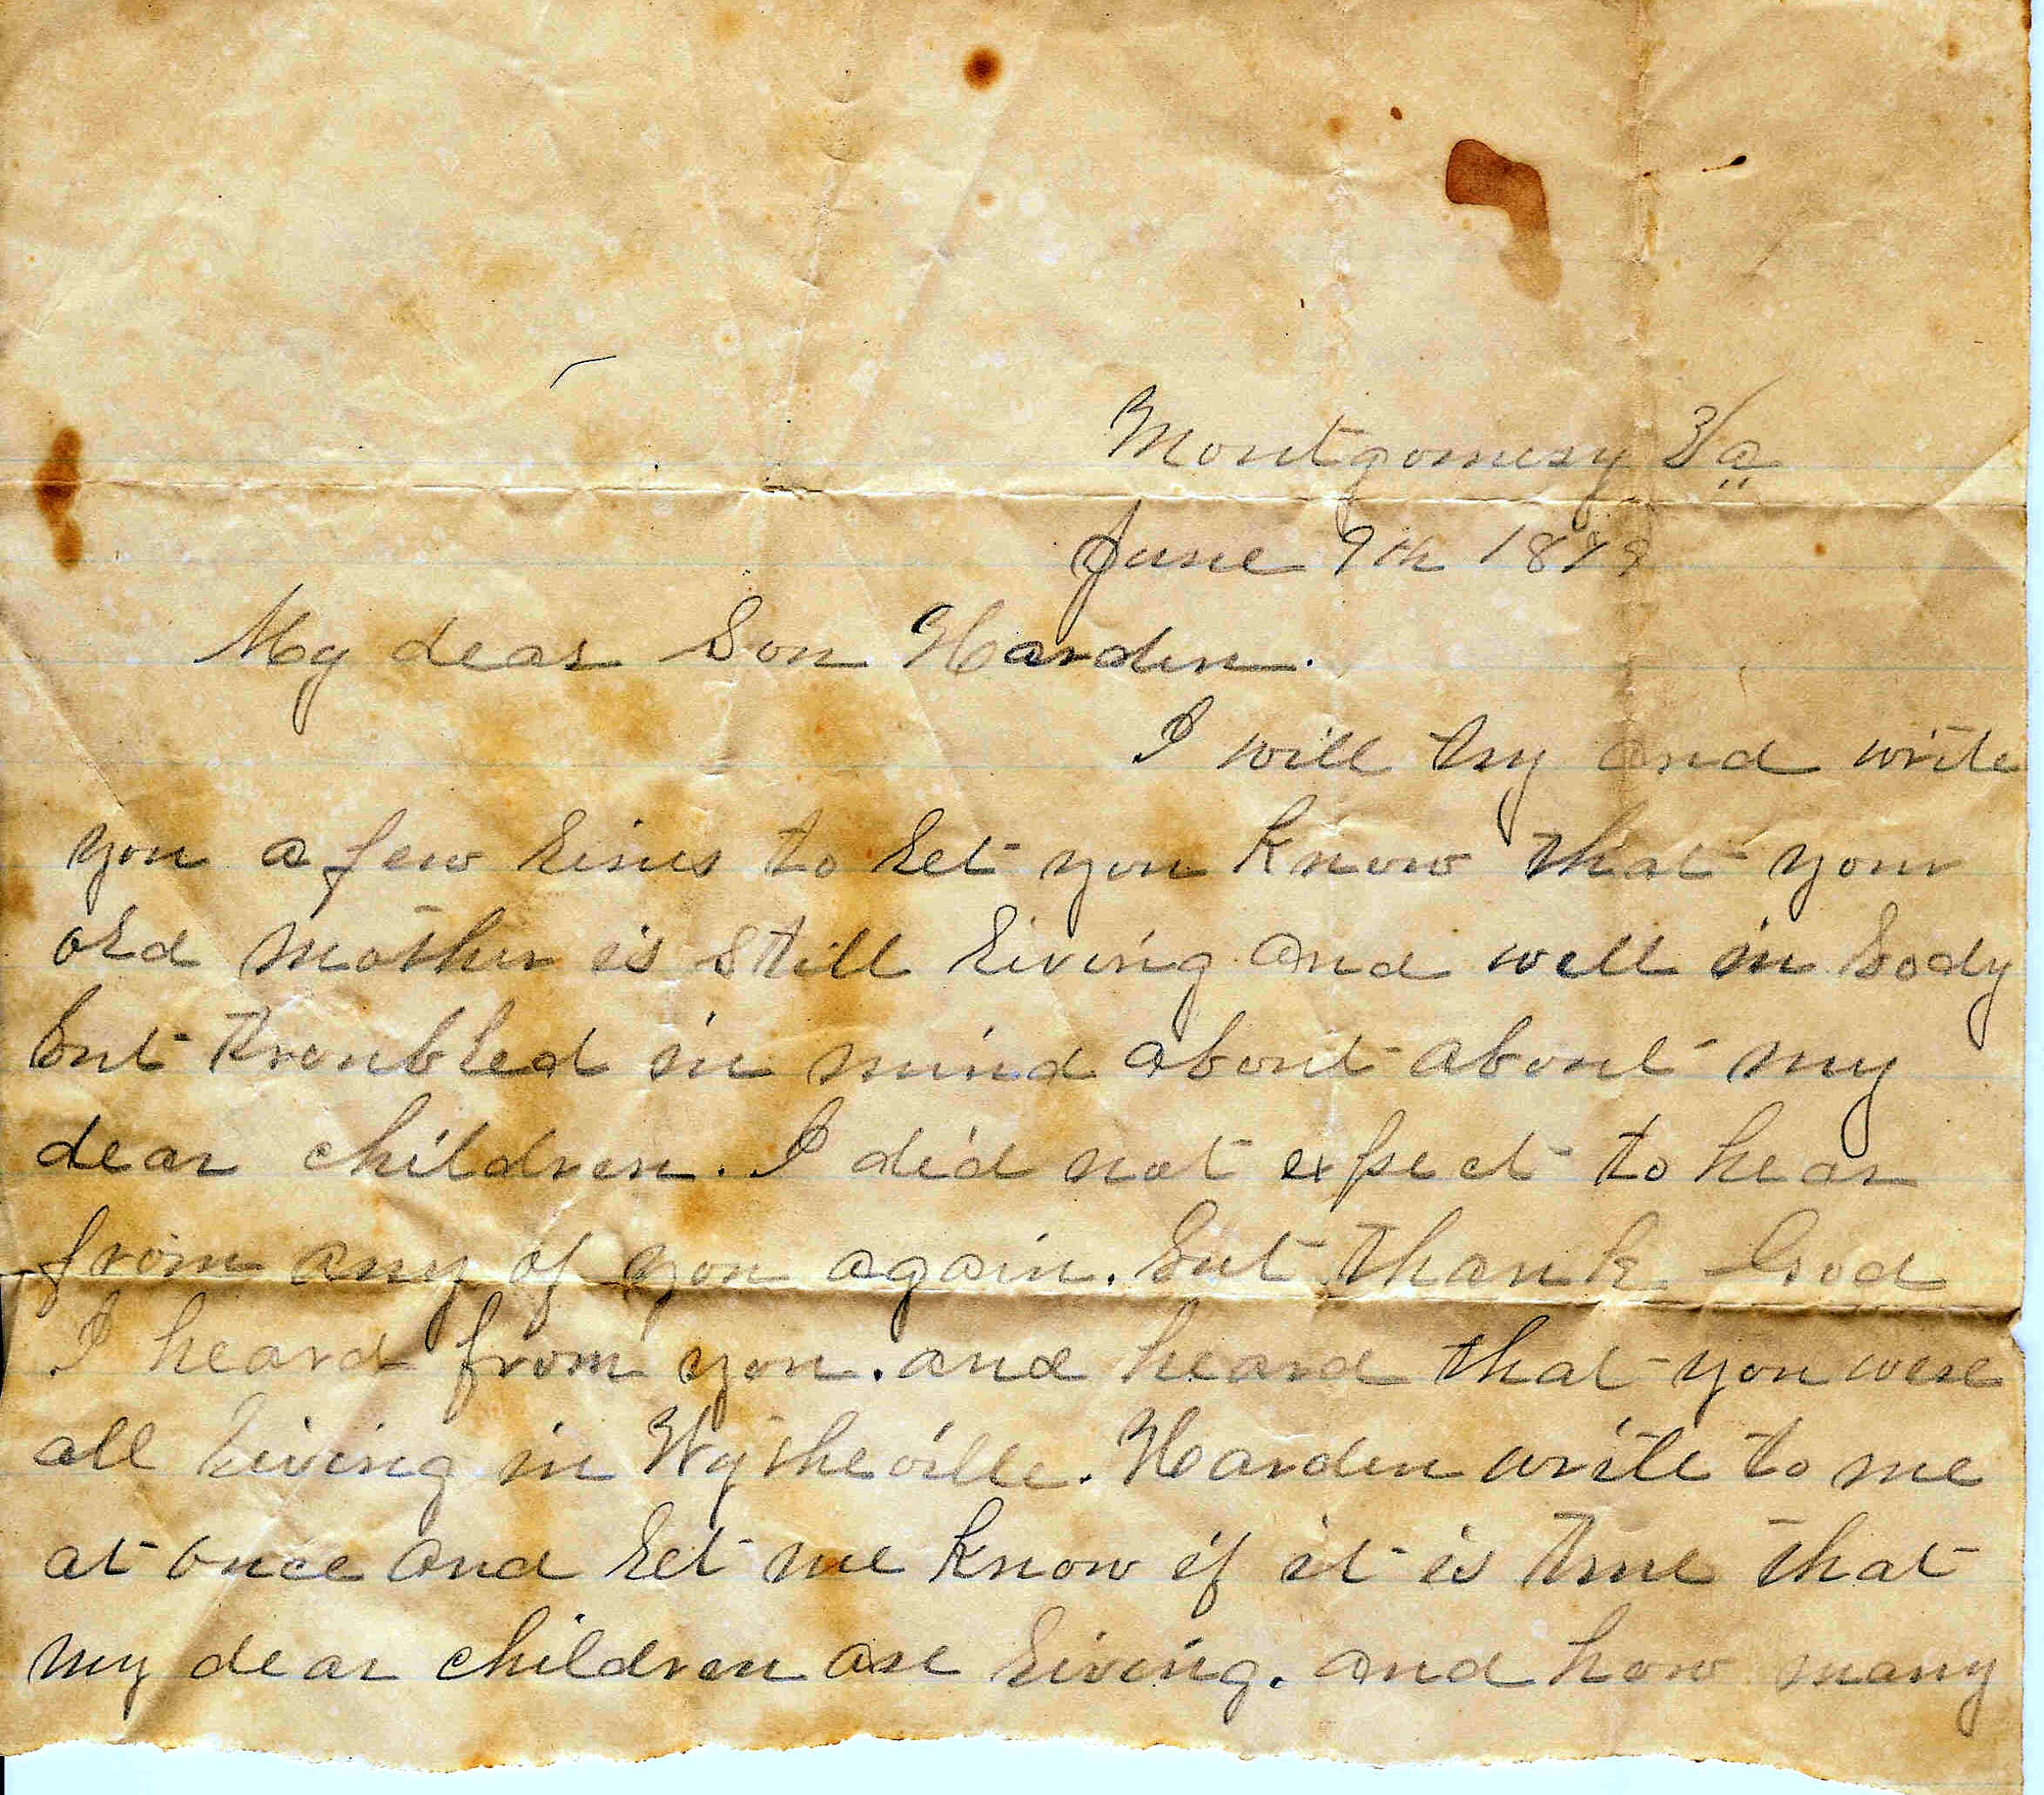 Montgomery Va
June 9th 1879
My dear Son Harden.
I will try and write
you a few lines to let you know that your
old mother is still living and well in body
but troubled in mind about about my
dear children. I did not expect to hear
from any of you again. but thank God
I heard from you. and heard that you were
all living in Wytheville. Harden write to me
at once and let me know if it is true that
my dear children are living. and how many